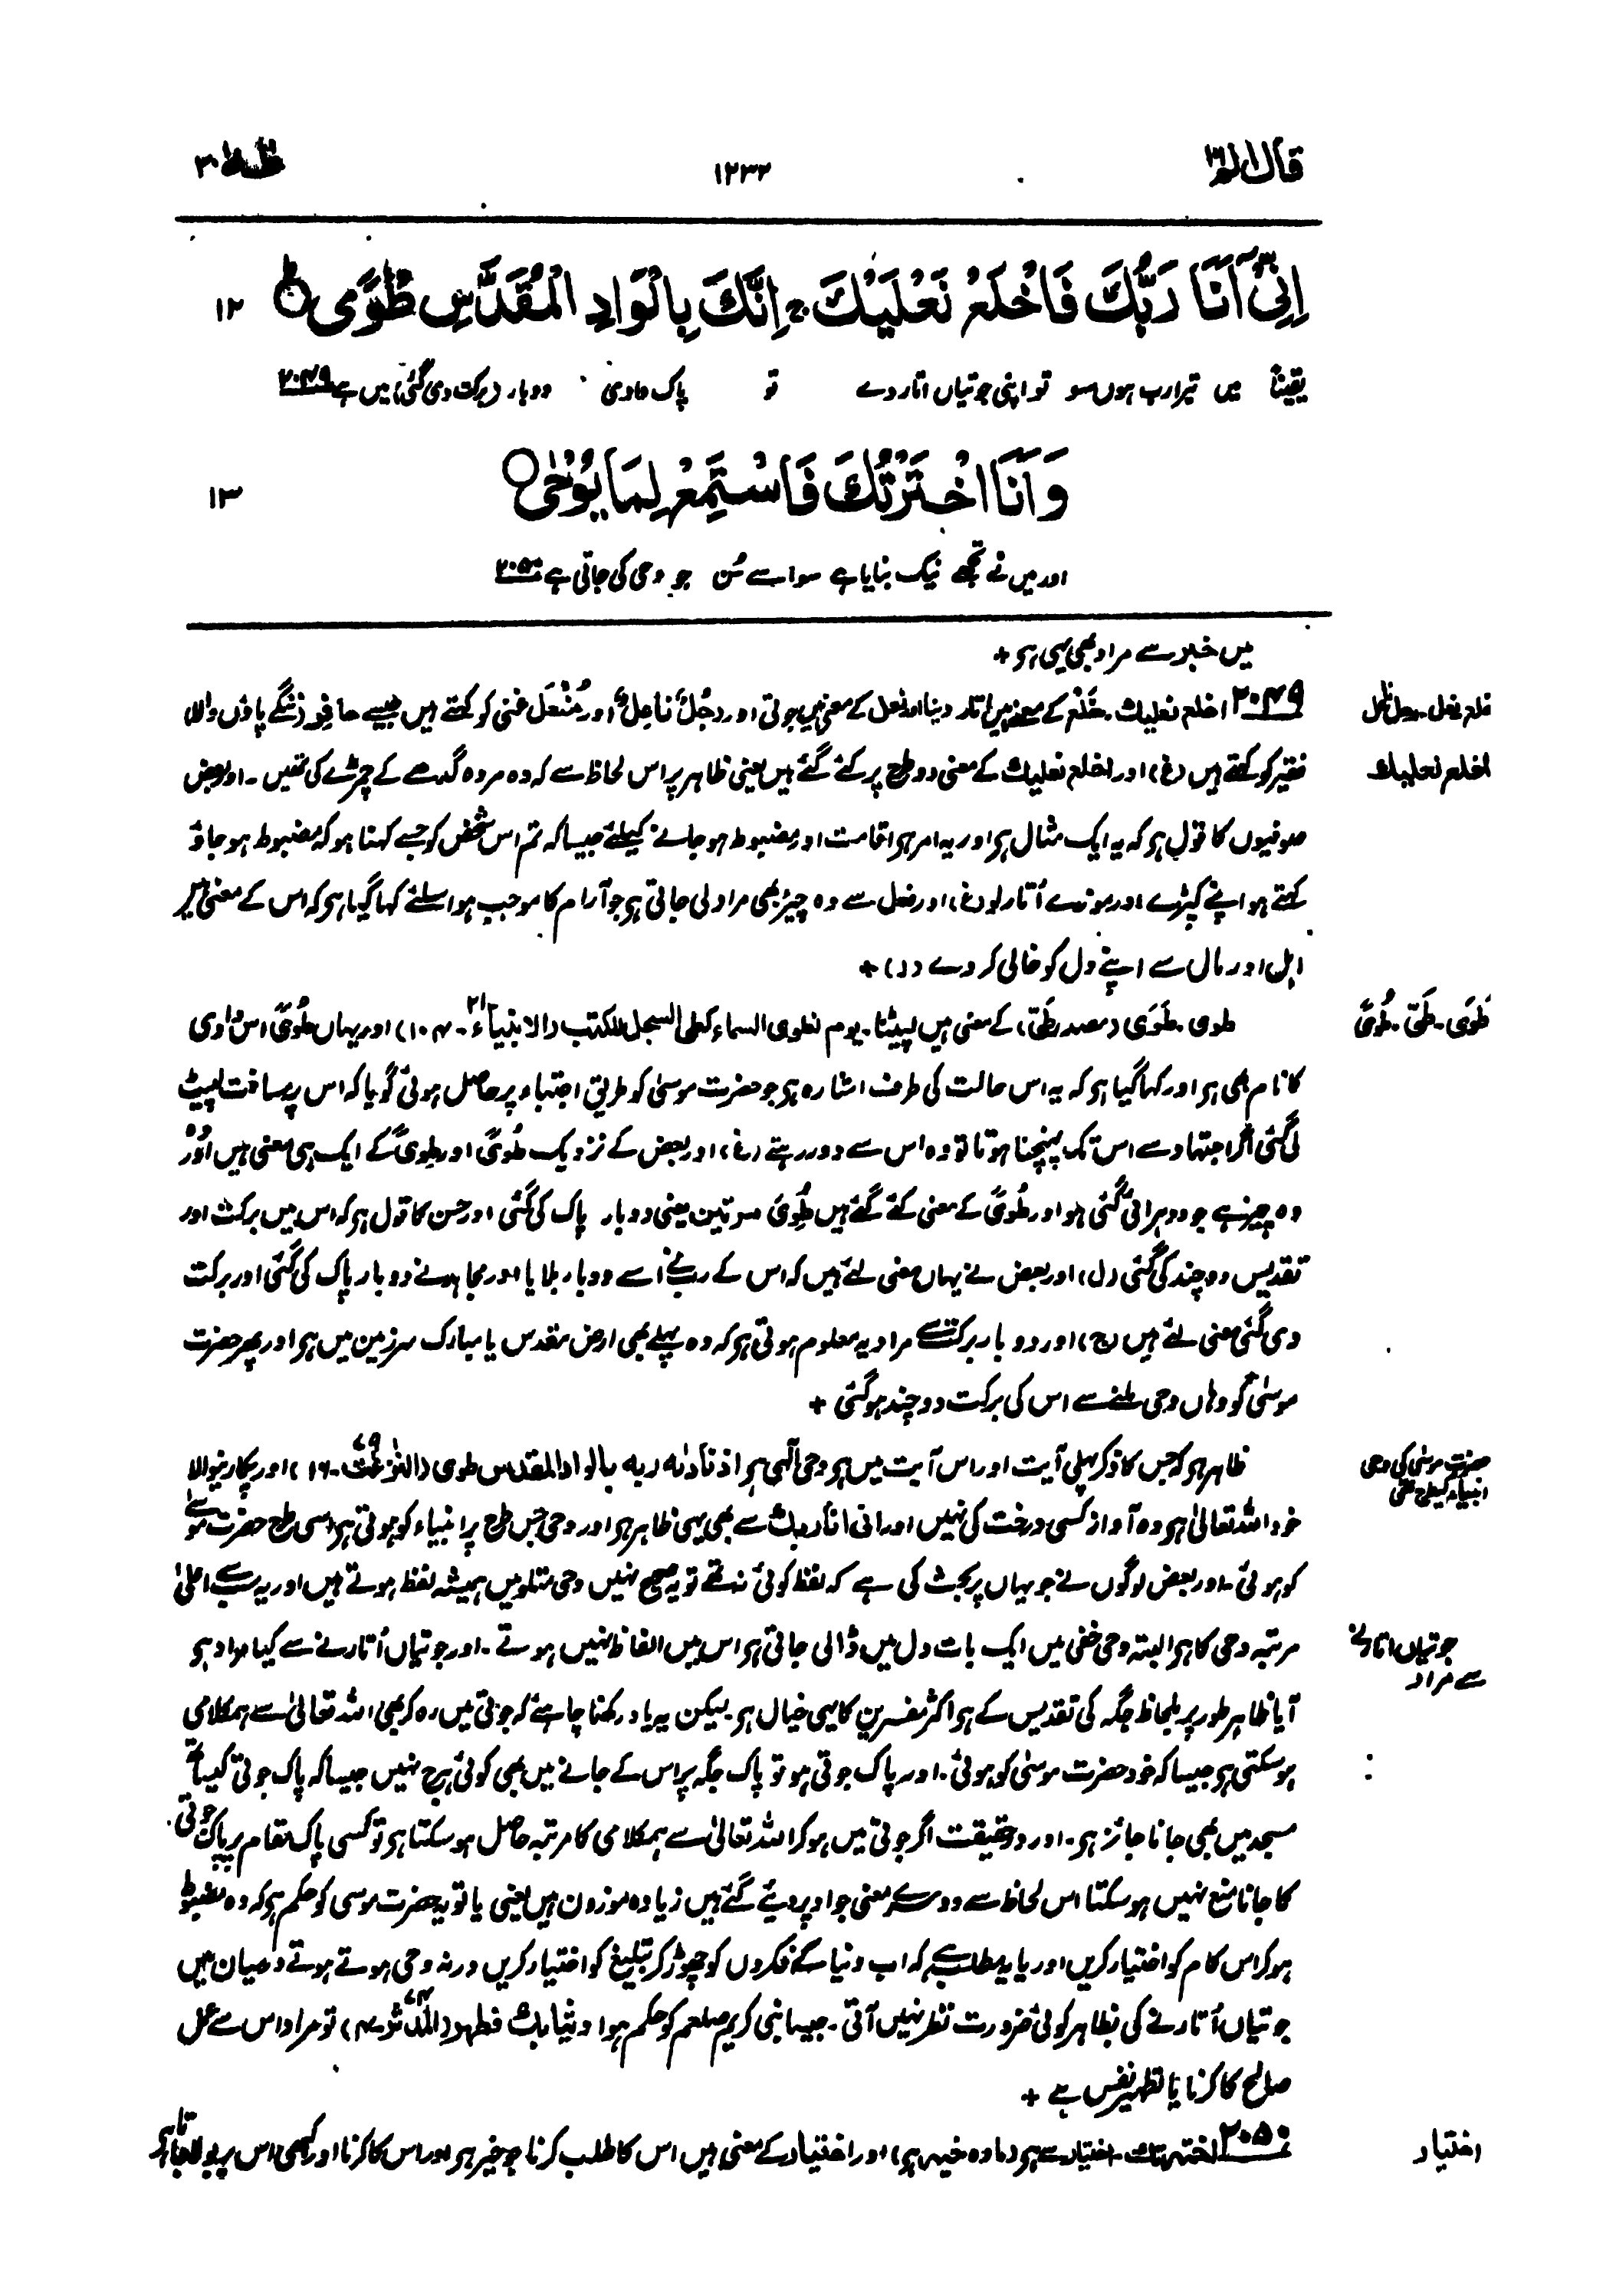 قال الم ١٦
١٢٣٢
طٰهٰ ٢٠
اِنِّيْٓ اَنَا رَبُّكَ فَاخْلَعْ نَعْلَيْكَ ۚ اِنَّكَ بِالْوَادِ الْمُقَدَّسِ طُوًى ۝
١٢
یقیناً میں تیرا رب ہوں سو تو اپنی جوتیاں اتار دے تو پاک وادی دو بار (برکت دی گئی) میں ہے ٢٠٤٩
وَاَنَا اخْتَرْتُكَ فَاسْتَمِعْ لِمَا يُوْحٰى ۝
١٣
اور میں نے تجھے نیک بنایا ہے سو اسے سُن جو وحی کی جاتی ہے ٢٠٥٠
میں خبر سے مراد بھی یہی ہو +
خلع نعل۔ رجل ناعل
٢٠٤٩ اخلع نعلیك۔ خَلْع کے معنے ہیں اتار دینا اور نعل کے معنی ہیں جوتی اور رجُلٌ ناعِلٌ اور مُنْعَل غنی کو کہتے ہیں جیسے حافٍ (ننگے پاؤں والا)
اخلع نعلیك
فقیر کو کہتے ہیں (غ) اور اخلع نعلیك کے معنی دو طرح پر کئے گئے ہیں یعنی ظاہر پر اس لحاظ سے کہ وہ مردہ گدھے کے چمڑے کی تھیں۔ اور بعض
صوفیوں کا قول ہو کہ یہ ایک مثال ہو اور یہ امر ہو اقامت اور مضبوط ہو جانے کیلئے جیسا کہ تم اس شخص کو جسے کہنا ہو کہ مضبوط ہو جاؤ
کہتے ہو اپنے کپڑے اور موزے اُتار لو (غ) اور نعل سے وہ چیز بھی مراد لی جاتی ہو جو آرام کا موجب ہو اسلئے کہا گیا ہو کہ اس کے معنی ہیں
اہل اور مال سے اپنے دل کو خالی کر دے (ر) +
طَوَی۔ طَیّ۔ طُوًی
طوی۔ طَوَی (مصدر طَیّ) کے معنی ہیں لپیٹنا۔ یوم نطوی السماء کطی السجل للکتب (الانبیاء ٢١۔ ١٠٤) اور یہاں طُوًی اس وادی
کا نام بھی ہو اور کہا گیا ہو کہ یہ اس حالت کی طرف اشارہ ہو جو حضرت موسیٰ کو طریق اجتباء پر حاصل ہوئی گویا کہ اس پر مسافت لپیٹ
لی گئی اگر اجتہاد سے اس تک پہنچنا ہوتا تو وہ اس سے دور رہتے (غ) اور بعض کے نزدیک طُوًی اور طِوًی کے ایک ہی معنی ہیں اور
وہ چیز ہے جو دوہرائی گئی ہو اور طُوًی کے معنی کئے گئے ہیں طُوِیَ مرتین یعنی دو بار پاک کی گئی اور حسن کا قول ہو کہ اس میں برکت اور
تقدیس دو چند کی گئی (ل) اور بعض نے یہاں معنی لئے ہیں کہ اس کے رب نے اسے دو بار بلایا اور مجاہد نے دو بار پاک کی گئی اور برکت
دی گئی معنی لئے ہیں (ج) اور دو بار برکت سے مراد یہ معلوم ہوتی ہو کہ وہ پہلے بھی ارض مقدس یا مبارک سرزمین میں ہو اور پھر حضرت
موسیٰ کو وہاں وحی ملنے سے اس کی برکت دو چند ہو گئی +
حضرت موسیٰ کی وحی انبیاء کیطرح تھی
ظاہر ہو کہ جس کا ذکر پہلی آیت اور اس آیت میں ہو وحی الٰہی ہو اذ نادٰىه ربه بالواد المقدس طوی (النّٰزعٰت ٧٩۔ ١٦) اور پکارنیوالا
خود اللہ تعالیٰ ہو وہ آواز کسی درخت کی نہیں اور انی انا ربك سے بھی یہی ظاہر ہو اور وحی جس طرح پر انبیاء کو ہوتی ہو اسی طرح حضرت موسےٰ
کو ہوئی۔ اور بعض لوگوں نے جو یہاں پر بحث کی ہے کہ لفظ کوئی نہ تھے تو یہ صحیح نہیں وحی متلو میں ہمیشہ لفظ ہوتے ہیں اور یہ سب سے اعلیٰ
جوتیاں اتارنے سے مراد
مرتبہ وحی کا ہو البتہ وحی خفی میں ایک بات دل میں ڈالی جاتی ہو اس میں الفاظ نہیں ہوتے۔ اور جوتیاں اُتارنے سے کیا مراد ہو
آیا ظاہر طور پر بلحاظ جگہ کی تقدیس کے ہو اکثر مفسرین کا یہی خیال ہو۔ لیکن یہ یاد رکھنا چاہئے کہ جوتی میں رہ کر بھی اللہ تعالیٰ سے ہمکلامی
ہو سکتی ہو جیسا کہ خود حضرت موسیٰ کو ہوئی۔ اور پاک جوتی ہو تو پاک جگہ پر اس کے جانے میں بھی کوئی ہرج نہیں جیسا کہ پاک جوتی کیساتھ
مسجد میں بھی جانا جائز ہو۔ اور درحقیقت اگر جوتی میں ہو کر اللہ تعالیٰ سے ہمکلامی کا مرتبہ حاصل ہو سکتا ہو تو کسی پاک مقام پر پاک جوتی
کا جانا منع نہیں ہو سکتا اس لحاظ سے دوسرے معنی جو اوپر دیئے گئے ہیں زیادہ موزون ہیں یعنی یا تو یہ حضرت موسی کو حکم ہو کہ وہ مضبوط
ہو کر اس کام کو اختیار کریں اور یا یہ مطلب ہے کہ اب دنیا کے فکروں کو چھوڑ کر تبلیغ کو اختیار کریں ورنہ وحی ہوتے ہوتے درمیان میں
جوتیاں اُتارنے کی بظاہر کوئی ضرورت نظر نہیں آتی۔ جیسا نبی کریم صلعم کو حکم ہوا وثیابك فطهر (المدثر ٧٤۔ ٤) تو مراد اس سے عمل
صالح کا کرنا یا تطہیر نفس ہے +
اختیار
٢٠٥٠ اخترتك۔ اختیار سے ہو (مادہ خیر ہو) اور اختیار کے معنی ہیں اس کا طلب کرنا جو خیر ہو اور اس کا کرنا اور کبھی اس پر بولا جاتا ہو